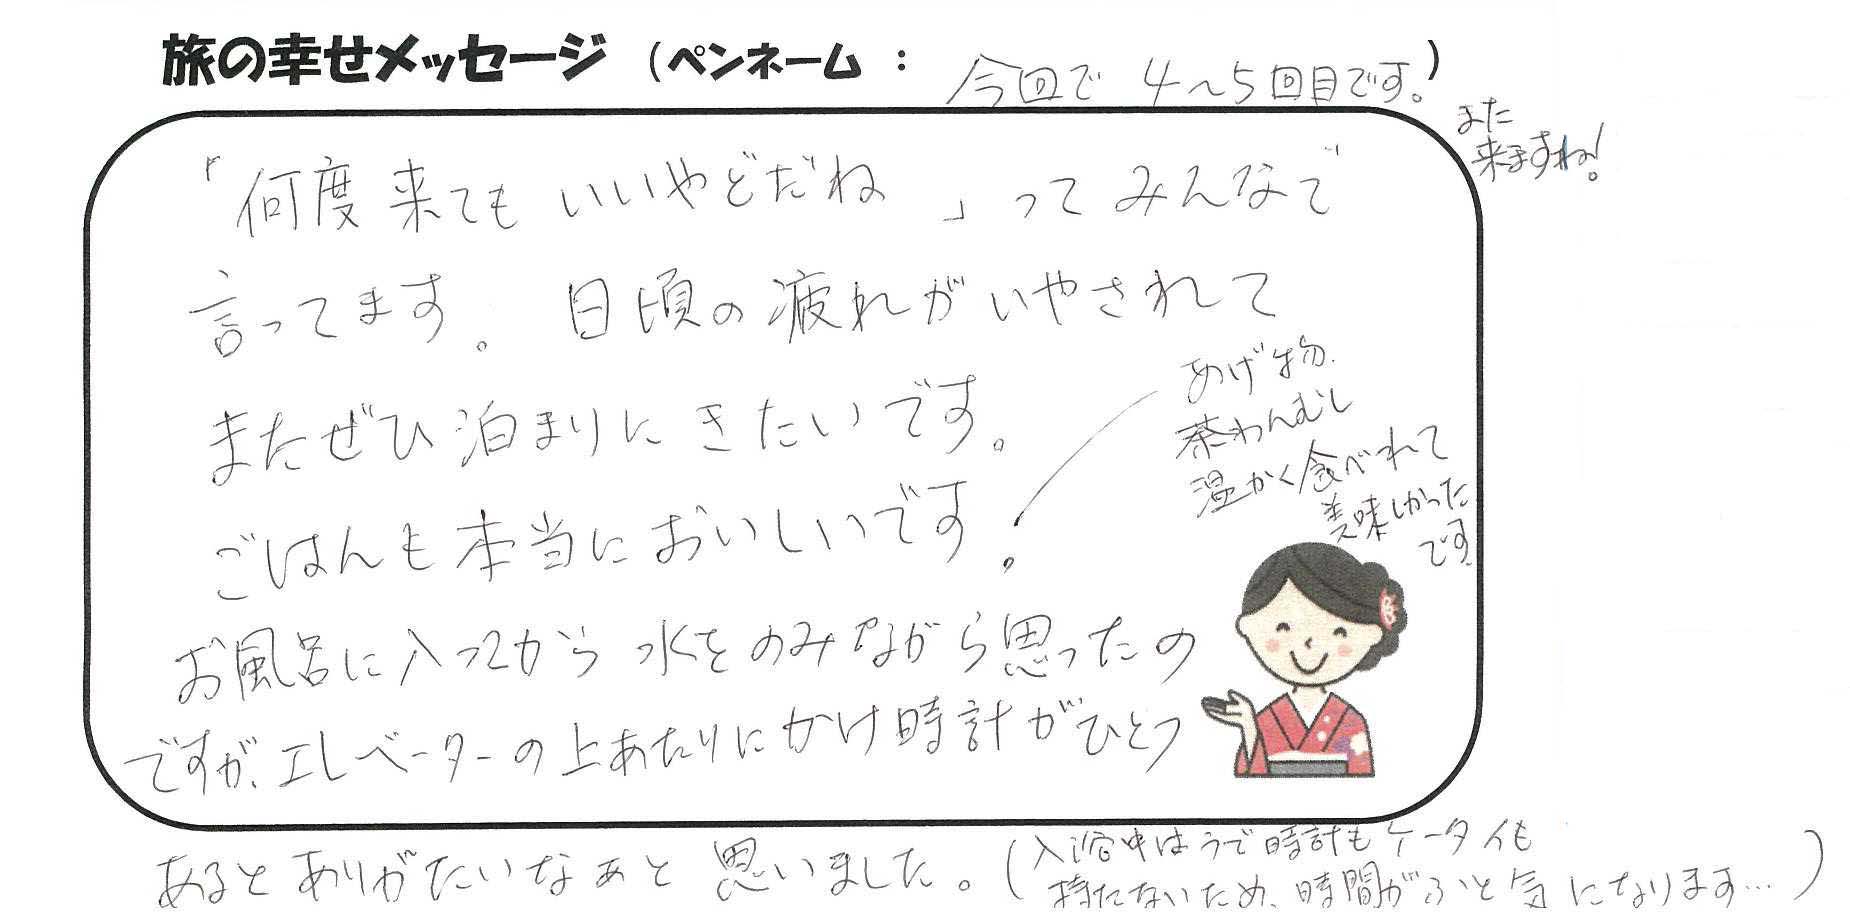 旅の幸せメッセージ (ペンネーム : 今回で 4〜5回目です。)
また
来ますね!
「何度来ても いいやどだね 」って みんなで
言ってます。 日頃の疲れがいやされて
またぜひ泊まりにきたいです。
ごはんも本当においしいです。
あげ物.
茶わんむし
温かく食べれて
美味しかった
です
お風呂に入ってから 水をのみながら思ったの
ですが、エレベーターの上あたりにかけ時計がひとつ
あるとありがたいなぁと 思いました。(入浴中はうで時計もケータイも
持たないため、時間がふと気になります…)